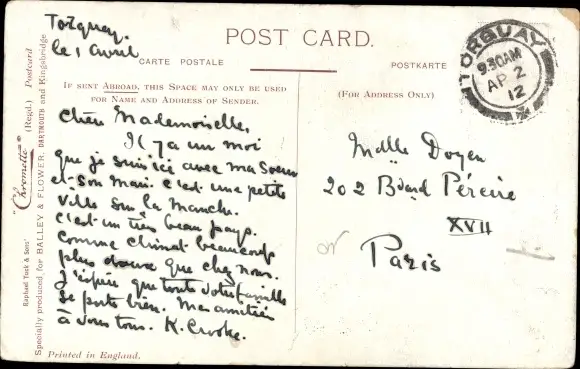 Torquay.
le 1 Avril
POST CARD.
CARTE POSTALE
POSTKARTE
IF SENT ABROAD, THIS SPACE MAY ONLY BE USED
FOR NAME AND ADDRESS OF SENDER.
(FOR ADDRESS ONLY)
TORQUAY
9.30AM
AP 2
12
Chère Mademoiselle,
Il y a un moi
que je suis ici avec ma Soeur
et son Mari. c'est une petite
ville sur la Manche.
c'est un très beau pays.
Comme climat beaucoup
plus doux que chez nous.
J'espère que toute votre famille
se porte bien. Mes amitiés
à vous tous. K. Crooke.
Mdlle Doyen
202 Bd Péreire
XVII
Paris
Raphael Tuck & Sons' "Chromette" (Regd.) Postcard
Specially produced for BALLEY & FLOWER, DARTMOUTH and Kingsbridge
Printed in England.